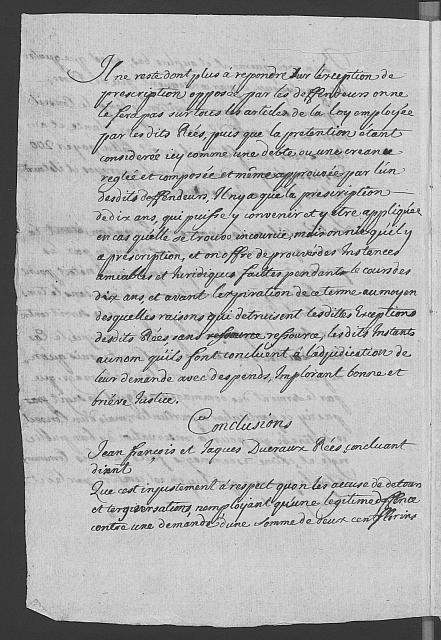 Il ne reste dont plus a repondre sur lexception de
prescription opposée par les deffendeurs on ne
le fera pas sur tous les articles de la loy employée
par les dits Rées, puis que la pretention étant
considerée icy comme une debte ou une creance
reglée et composée et même approuvée par l'un
desdits deffendeurs, Il n'y a que la prescription
de dix ans, qui puisse y convenir et y etre appliquée
en cas qu'elle se trouve encourie, mais on nie qu'il y
a prescription, et on offre de prouver des Instances
amiables et Juridiques faites pendant le cours des
dix ans et avant l'expiration de ce terme au moyen
desquelles raisons qui detruisent lesdites Exceptions
desdits Rées, sans ressource ressource, lesdits Instants
au nom qu'ils font concluent à l'adjudication de
leur demande avec despends, Implorant bonne et
briéve Justice.
Conclusions
Jean françois et Jaques Ducraux Rées, concluant
disent
Que cest injustement à respect qu'on les accuse de detour
et tergiversations, n'employant qu'une legitime deffence
contre une demande d'une somme de deux cent florins